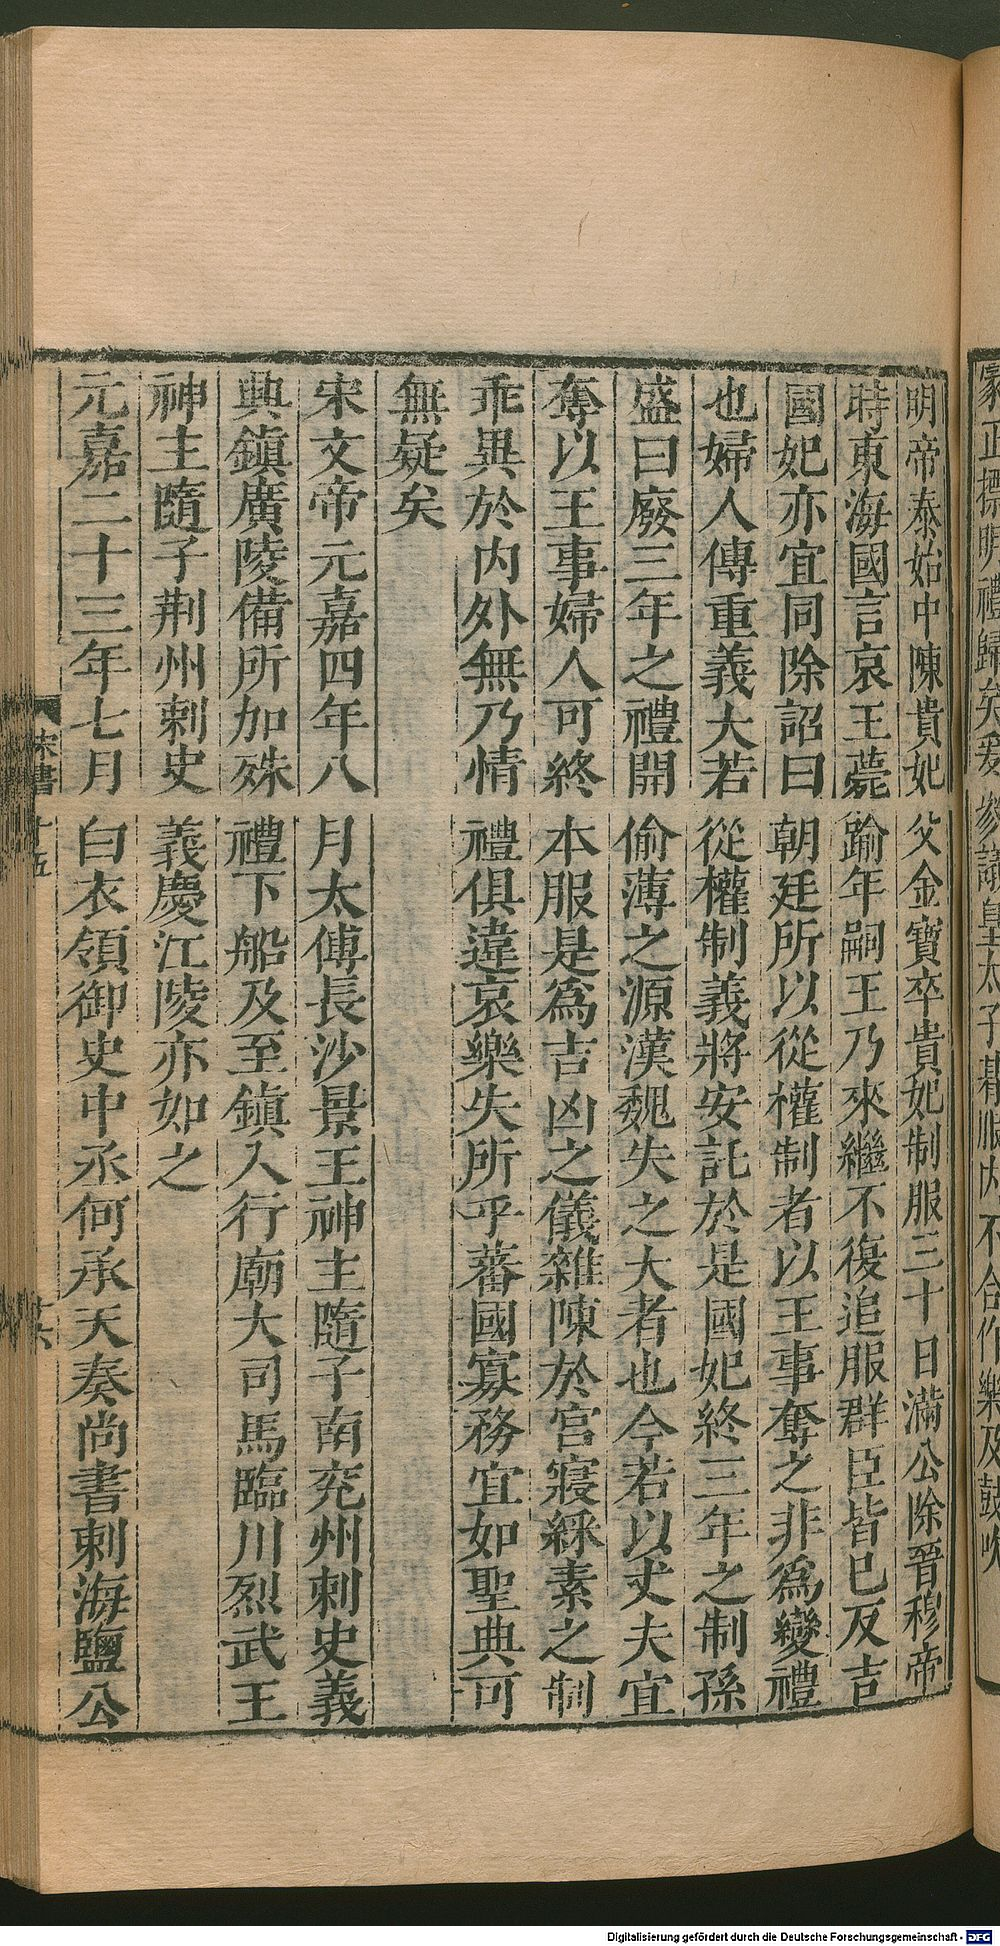 明帝泰始中陳貴妃父金寶卒貴妃制服三十日滿公除晉穆帝
時東海國言哀王薨踰年嗣王乃來繼不復追服群臣皆已反吉
國妃亦宜同除詔曰朝廷所以從權制者以王事奪之非為變禮
也婦人傳重義大若從權制義將安託於是國妃終三年之制孫
盛曰廢三年之禮開偷薄之源漢魏失之大者也今若以丈夫宜
奪以王事婦人可終本服是為吉凶之儀雜陳於宮寢綵素之制
乖異於內外無乃情禮俱違哀樂失所乎蕃國寡務宜如聖典可
無疑矣
宋文帝元嘉四年八月太傅長沙景王神主隨子南兖州刺史義
興鎮廣陵備所加殊禮下船及至鎮入行廟大司馬臨川烈武王
神主隨子荆州刺史義慶江陵亦如之
元嘉二十三年七月白衣領御史中丞何承天奏尚書刺海鹽公
宋書 十五
正標明禮歸 議皇太子 不合作樂及鼓吹
Digitalisierung gefördert durch die Deutsche Forschungsgemeinschaft - DFG